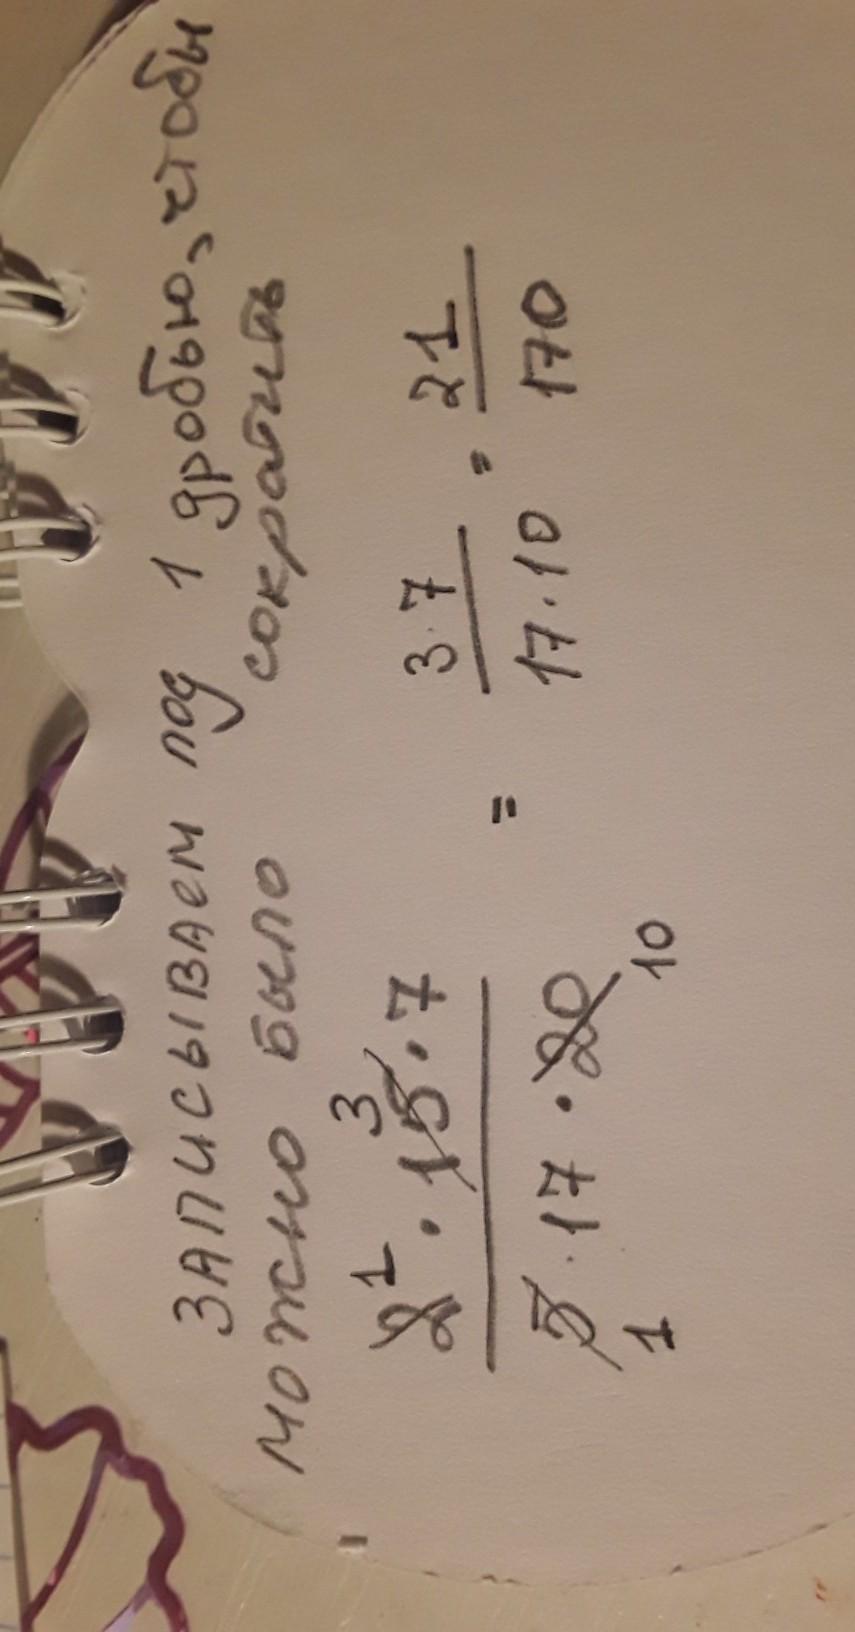 записываем под 1 дробью, чтобы
можно было сокращать
2 1 · 15 3 · 7 / 5 1 · 17 · 20 10 = 3·7 / 17·10 = 21 / 170